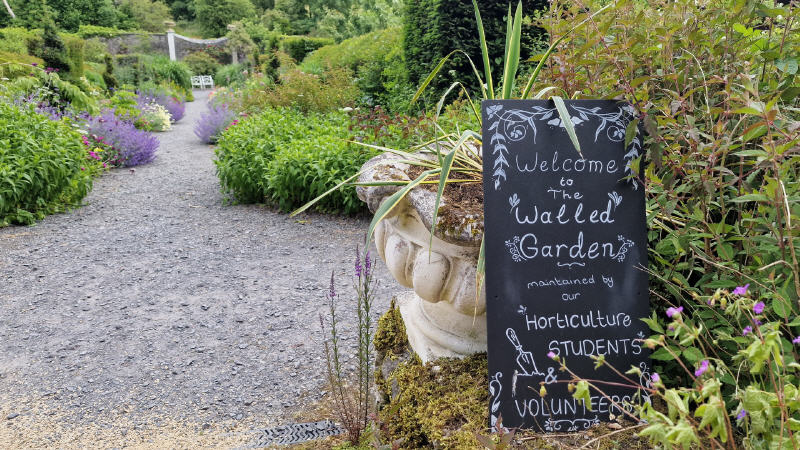 Welcome
to
The
Walled
Garden
maintained by
our
Horticulture
STUDENTS
&
VOLUNTEERS